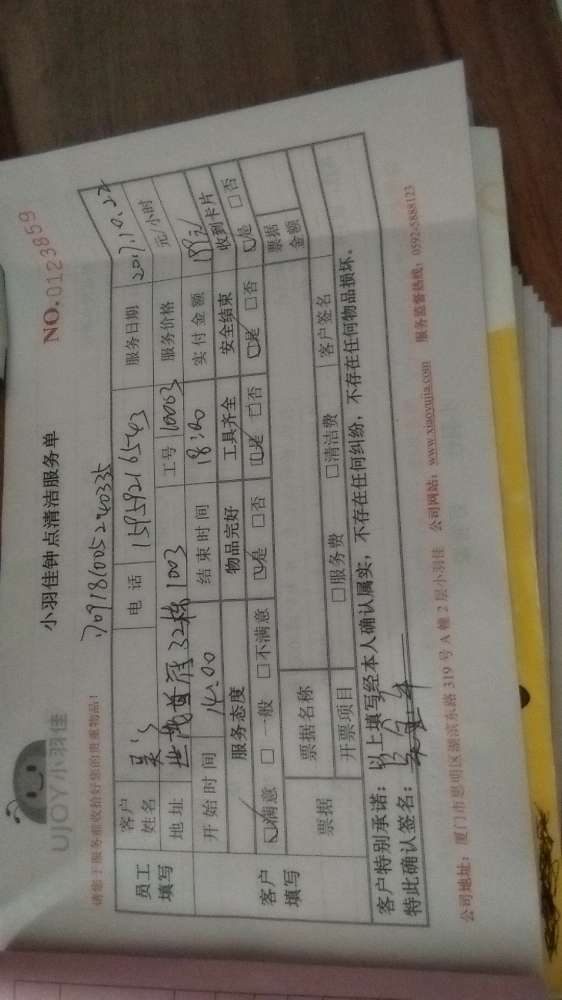 UJOY小羽佳
小羽佳钟点清洁服务单
NO.0123859
请您于服务前收拾好您的贵重物品!
员工填写
客户姓名 吴 电话 15959216543 服务日期 2017.10.22
地址 世茂首府32栋1003 工号 10003 服务价格 元/小时
开始时间 14:00 结束时间 18:00 实付金额 188元
客户填写
服务态度 物品完好 工具齐全 安全结束 收到卡片
☑满意 □一般 □不满意 ☑是 □否 ☑是 □否 ☑是 □否 ☑是 □否
票据 票据名称 票据金额
开票项目 □服务费 □清洁费 客户签名
客户特别承诺:以上填写经本人确认属实,不存在任何纠纷,不存在任何物品损坏。
特此确认签名:
公司地址:厦门市思明区湖滨东路319号A幢2层小羽佳 公司网站:www.xiaoyujia.com 服务监督热线:0592-5888123